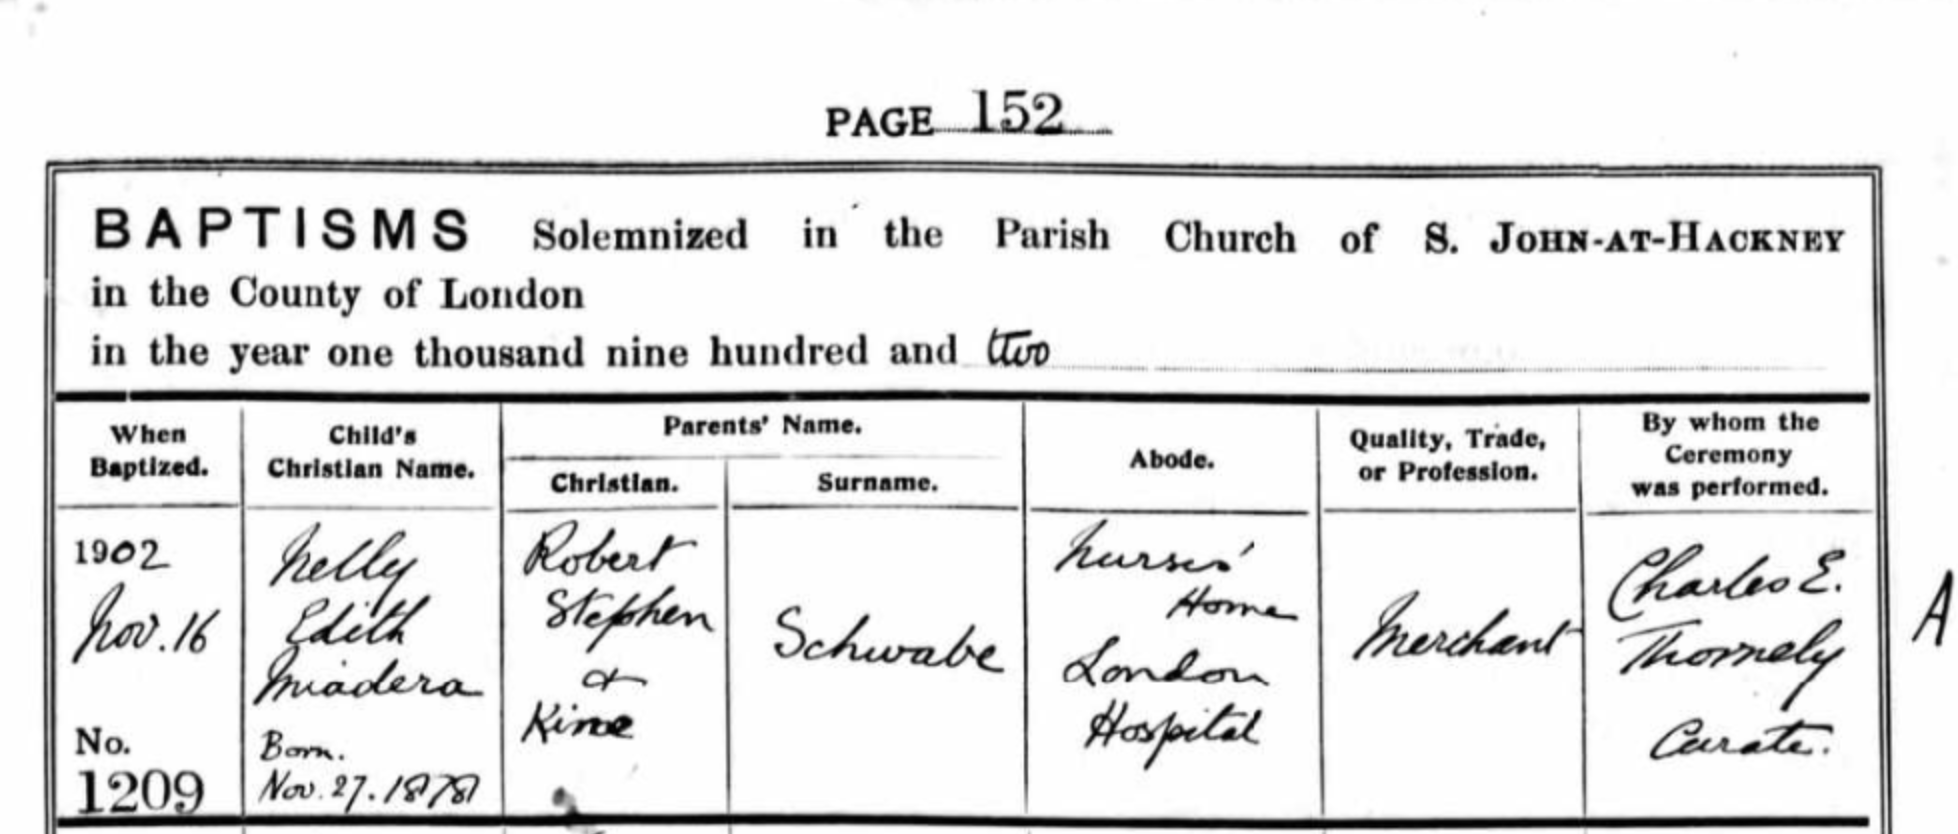 PAGE 152
BAPTISMS Solemnized in the Parish Church of S. JOHN-AT-HACKNEY
in the County of London
in the year one thousand nine hundred and two
When Baptized.
Child's Christian Name.
Parents' Name.
Christian.
Surname.
Abode.
Quality, Trade, or Profession.
By whom the Ceremony was performed.
1902
Nov. 16
No.
1209
Nelly
Edith
Born.
Nov. 27. 1878
Robert
Stephen
&
Schwabe
Nurses'
Home
London
Hospital
Merchant
Charles E.
Thornely
Curate.
A